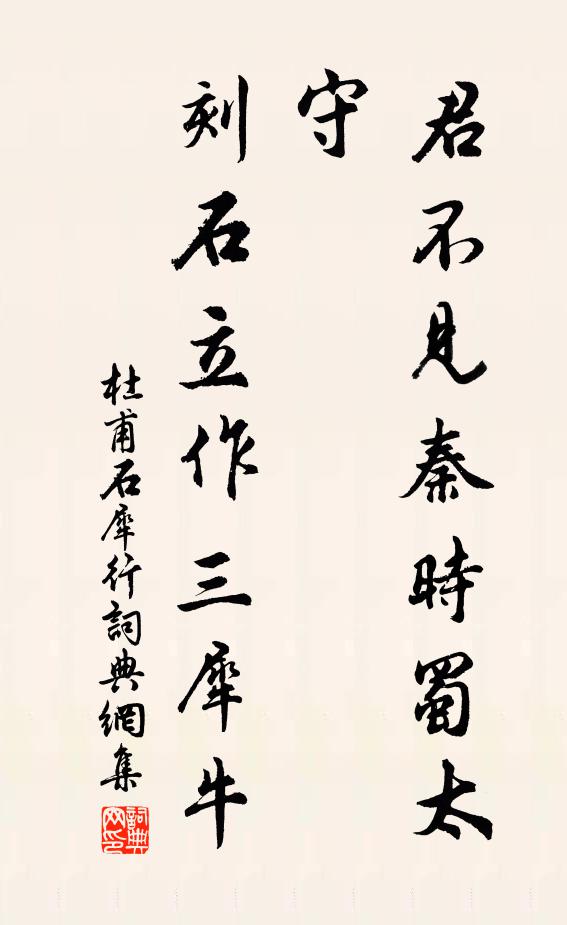 君不見秦時蜀太
守
刻石立作三犀牛
杜甫石犀行詞典網集
詞典网印